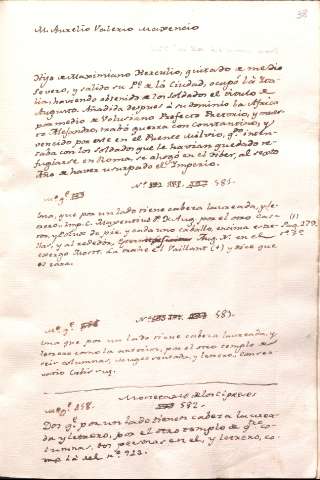 38
M. Aurelio Valerio Maxencio
Hijo de Maximiano Herculio, quitado de medio
Severo, y salido su Pe. de la Ciudad, ocupó la Ita-
lia, haviendo obtenido de los Soldados el titulo de
Augusto. Añadida despues a su dominio la Africa
por medio de Volusiano Prefecto Pretorio, y muer-
to Alejandro, trabó guerra con Constantino, y
vencido por este en el Puente Milvio,
saba con los soldados que le havian quedado re-
fugiarse en Roma, se ahogó en el Tiber, al septo
Año de haver usurpado el Imperio.
581.
Una, que por un lado tiene cabeza laureada, y le-
trero. Imp. C. Maxentius P. F. Aug. por el otro Cas-
tor, y Polux de pie, y cada uno caballo, encima estre-
llas, y al rededor, Aug. N. en el
exergo Most. La trahe el Vaillant (1) y dice que
es rara.
(1)
Pag. 279
Nº
Una que por un lado tiene cabeza laureada, y
letrero como la anterior, por el otro templo de
seis columnas, imagen sentada, y letrero, Conser-
vatio Urbis suę.
Monetario de los Cipreses
158. 582.
Dos que por un lado tienen cabeza laurea-
da y letrero, por el otro templo de co-
lumnas, dos personas en el, y letrero, co-
mo la del nº 923.